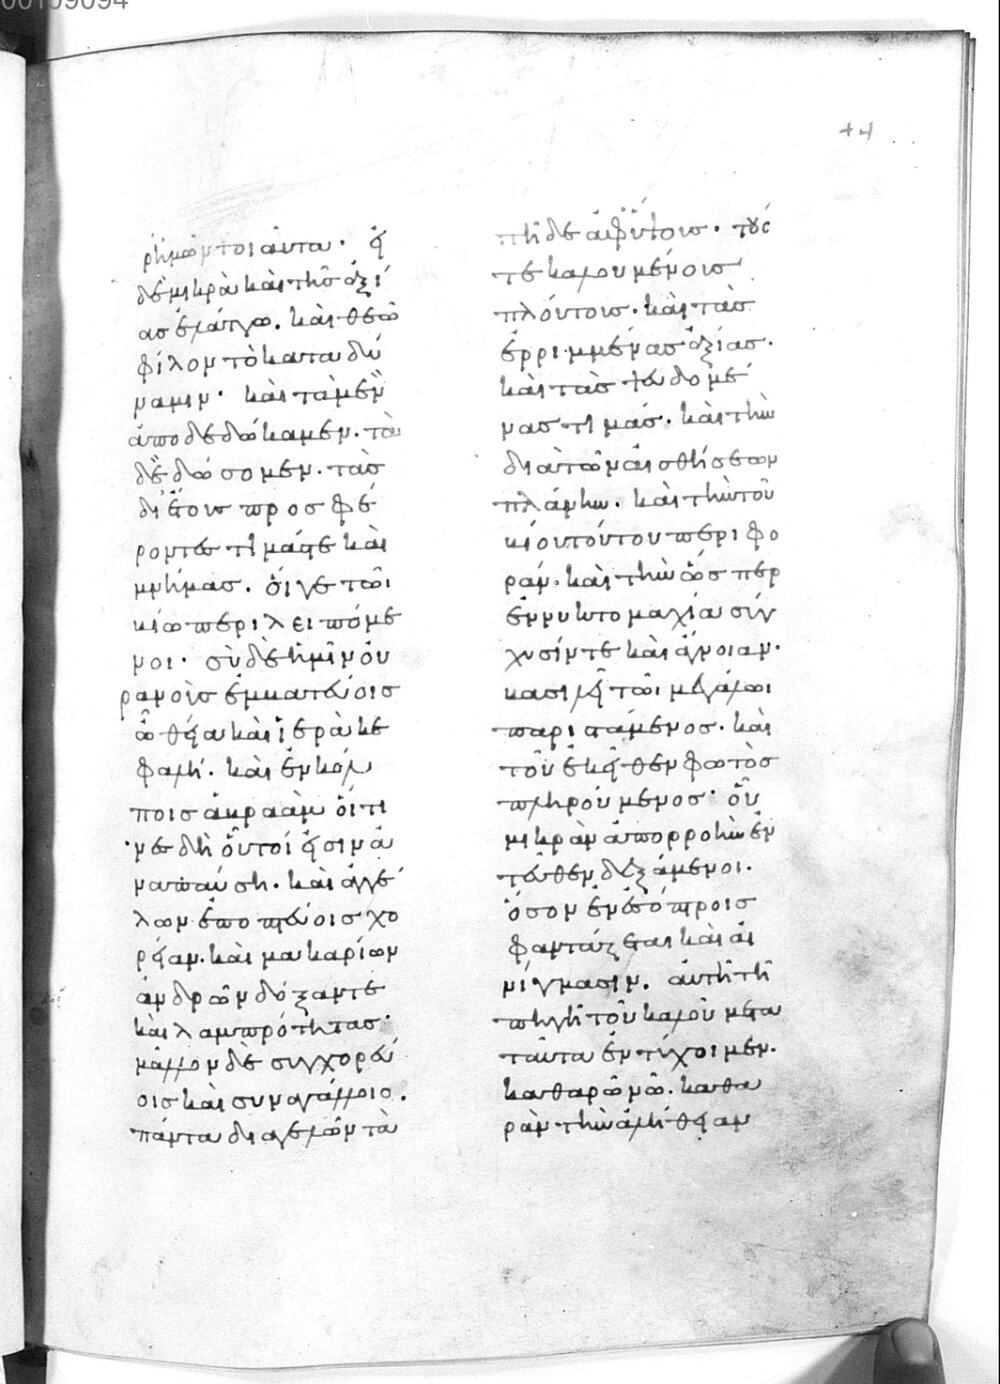 00109094
44
ρ ἡμῶν τοιαῦτα· εἰ
δὲ μικρὰ καὶ τῆς ἀξί
ας ἐλάττω. καὶ θεῶ
φίλον τὸ κατὰ δύ
ναμιν· καὶ τὰ μὲν
ἀποδεδώκαμεν. τὰ
δὲ δώσομεν. τὰς
δι ἔτους προσφέ
ροντες τιμάς τε καὶ
μνήμας. οἵ γε τῶι
βίω περιλειπόμε
νοι· σὺ δὲ ἡμῖν οὐ
ρανοὺς ἐμβατεύοις
ὦ θεία καὶ ἱερὰ κε
φαλή. καὶ ἐν κόλ
ποις ἀβραὰμ οἵ τι
νες δὴ οὗτοί εἰσιν ἀ
ναπαύση. καὶ ἀγγέ
λων ἐποπτεύοις χο
ρείαν. καὶ μακαρίων
ἀνδρῶν δόξας τε
καὶ λαμπρότητας·
μᾶλλον δὲ συγχορεύ
οις καὶ συναγάλλοιο.
πάντα διαγελῶν τὰ
τῆδε ἀφ ὕψους· τούς
τε καλουμένους
πλούτους. καὶ τὰς
ἐρριμμένας ἀξίας.
καὶ τὰς ψευδομέ
νας τιμάς. καὶ τὴν
διὰ τῶν αἰσθήσεων
πλάνην. καὶ τὴν τοῦ
βίου τούτου περιφο
ράν. καὶ τὴν ὥσπερ
ἐν νυκτομαχία σύγ
χυσίν τε καὶ ἄγνοιαν.
βασιλεῖ τῶι μεγάλωι
παριστάμενος. καὶ
τοῦ ἐκεῖθεν φωτὸς
πληρούμενος· οὗ
μικρὰν ἀπορροὴν ἐν
τεῦθεν δεξάμενοι.
ὅσον ἐν ἐσόπτροις
φαντάζεται καὶ αἰ
νίγμασιν. αὐτῆ τῆ
πηγῆ τοῦ καλοῦ μετὰ
ταῦτα ἐντύχοιμεν.
καθαρῶ νῶ. καθα
ρὰν τὴν ἀλήθειαν